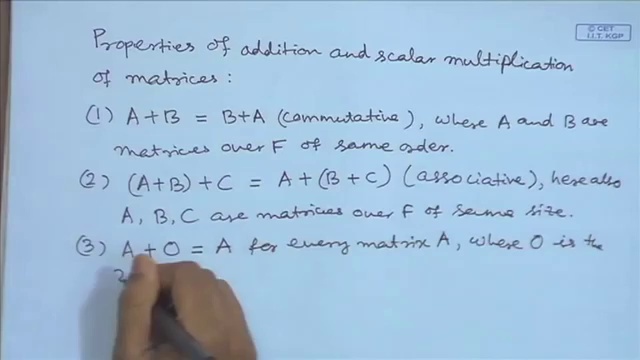 © CET
I.I.T. KGP
Properties of addition and scalar multiplication
of matrices :
(1) A+B = B+A (commutative), where A and B are
matrices over F of same order.
(2) (A+B)+C = A+(B+C) (associative), here also
A, B, C are matrices over F of same size.
(3) A+O = A for every matrix A, where O is the